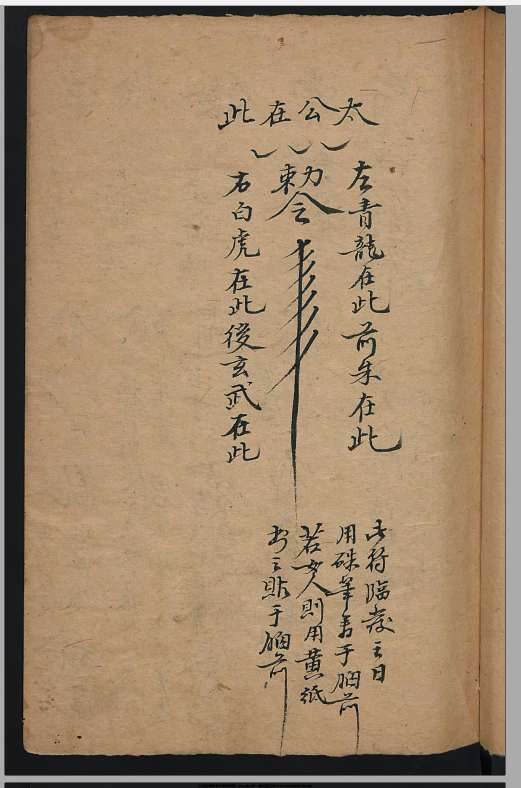 太公在此
左青龍在此前朱在此
勅令
右白虎在此後玄武在此
此符臨發之日
用硃筆書于胸前
若女人則用黃紙
書之貼于胸前